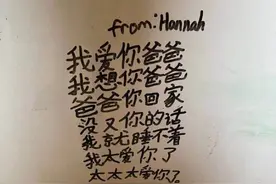 from: Hannah
我爱你爸爸
我想你爸爸
爸爸你回家
没又你的话
我就睡不着
我太爱你了
太太太爱你了